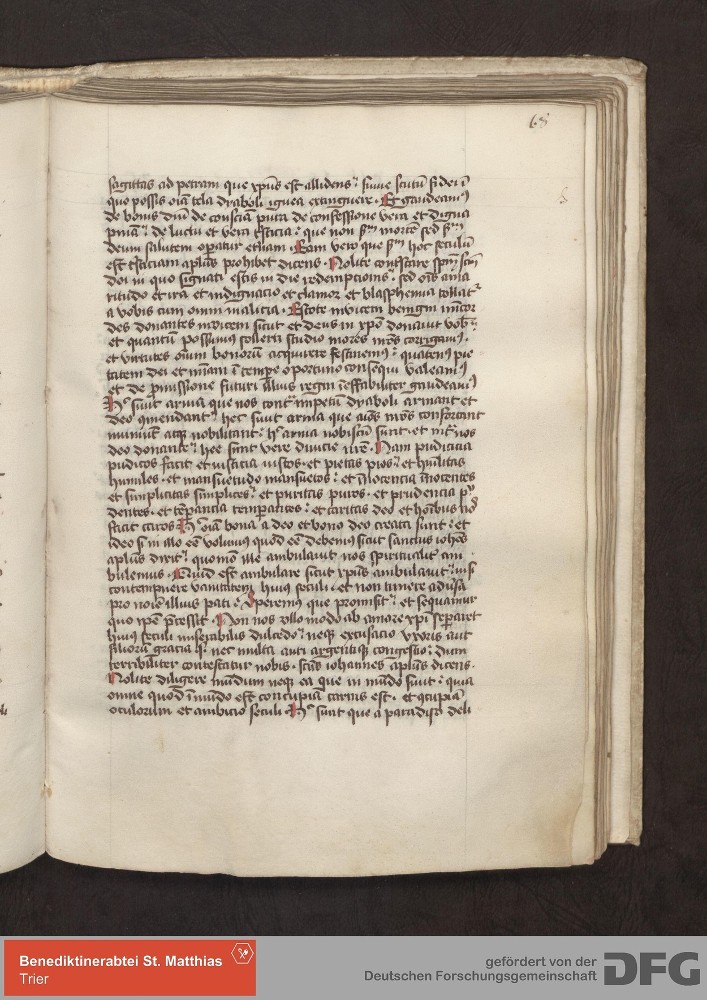 68
sagittas ad petram que xpūs est allidens? sume scutū fidei ī
quo possis oīa tela dyaboli ignea extinguere. Et gaudeam9
de bonis dm̄ de consciā pura de confessione vera et digna
pnīa? de luctu et vera tristicia? que non sm̄ mortē sed sm̄
deum salutem opatur et̄nam. Eam vero que sm̄ hoc seculū
est tristiciam aplūs prohibet dicens. Nolite contristare spm̄ scm̄
dei in quo signati estis in die redempcionis? sed oīs ama
ritudo et ira et indignacio et clamor et blasphemia tollat2
a vobis cum omni malicia. Estote invicem benigni mīcor
des donantes invicem sicut et deus in xpō donavit vob?
et quantū possumus sollerti studio mores nros corrigam9.
et virtutes omīum bonorum acquirere festinem9? quaten9 pie
tatem dei et mīam ī tempe oportuno consequi valeam9
et de pmissione futuri illius regni ineffabiliter gaudeam9
Hec sunt arma que nos cont impetū dyaboli armant et
deo cmendant? hec sunt arma que aīas nr̄as confortant
muniunt atq nobilitant? hec arma nobiscū sunt. et int nos
deo donante? hee sunt vere divicie nr̄e. Nam pudicicia
pudicos facit et iusticia iustos. et pietas pios? et hūilitas
humiles. et mansuetudo mansuetos? et īnocencia īnocentes
et simplicitas simplices? et puritas puros. et prudencia pru
dentes. et tempancia temperantes? et caritas deo et hoībus nos
facit caros. Hec oīa bona a deo et bono deo creata sunt? et
ideo si in illo eē volum9 quod eē debem9 sicut sanctus iohes
aplūs dixit? quomō ille ambulavit nos spiritualit am
bulemus. Quid est ambulare sicut xpūs ambulavit? nisi
contempnere vanitatem huius seculi? et non timere adversa
pro noīe illius pati? Speremus que promisit? et sequamur
quo ipse pcessit. Non nos vllo modo ab amore xpi separet
huius seculi miserabilis dulcedo? neque excusacio vxoris aut
filiorum gracia nec multa auri argentique congestio? dum
terribiliter contestatur nobis. scūs iohannes aplūs dicens.
Nolite diligere mūdum neque ea que in mūdo sunt? quia
omne quod ī mūdo est concupiā carnis est. et cupiā
oculorum et ambicio seculi. Hec sunt que a paradisi deli
Benediktinerabtei St. Matthias
Trier
gefördert von der
Deutschen Forschungsgemeinschaft
DFG